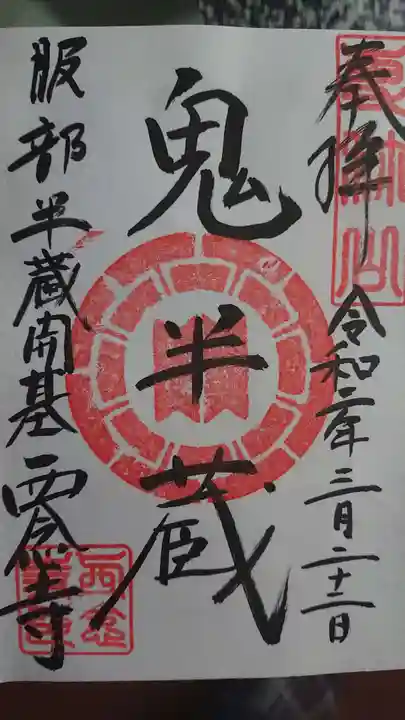 奉拝
令和二年三月二十二日
鬼半蔵
服部半蔵開基 西念寺